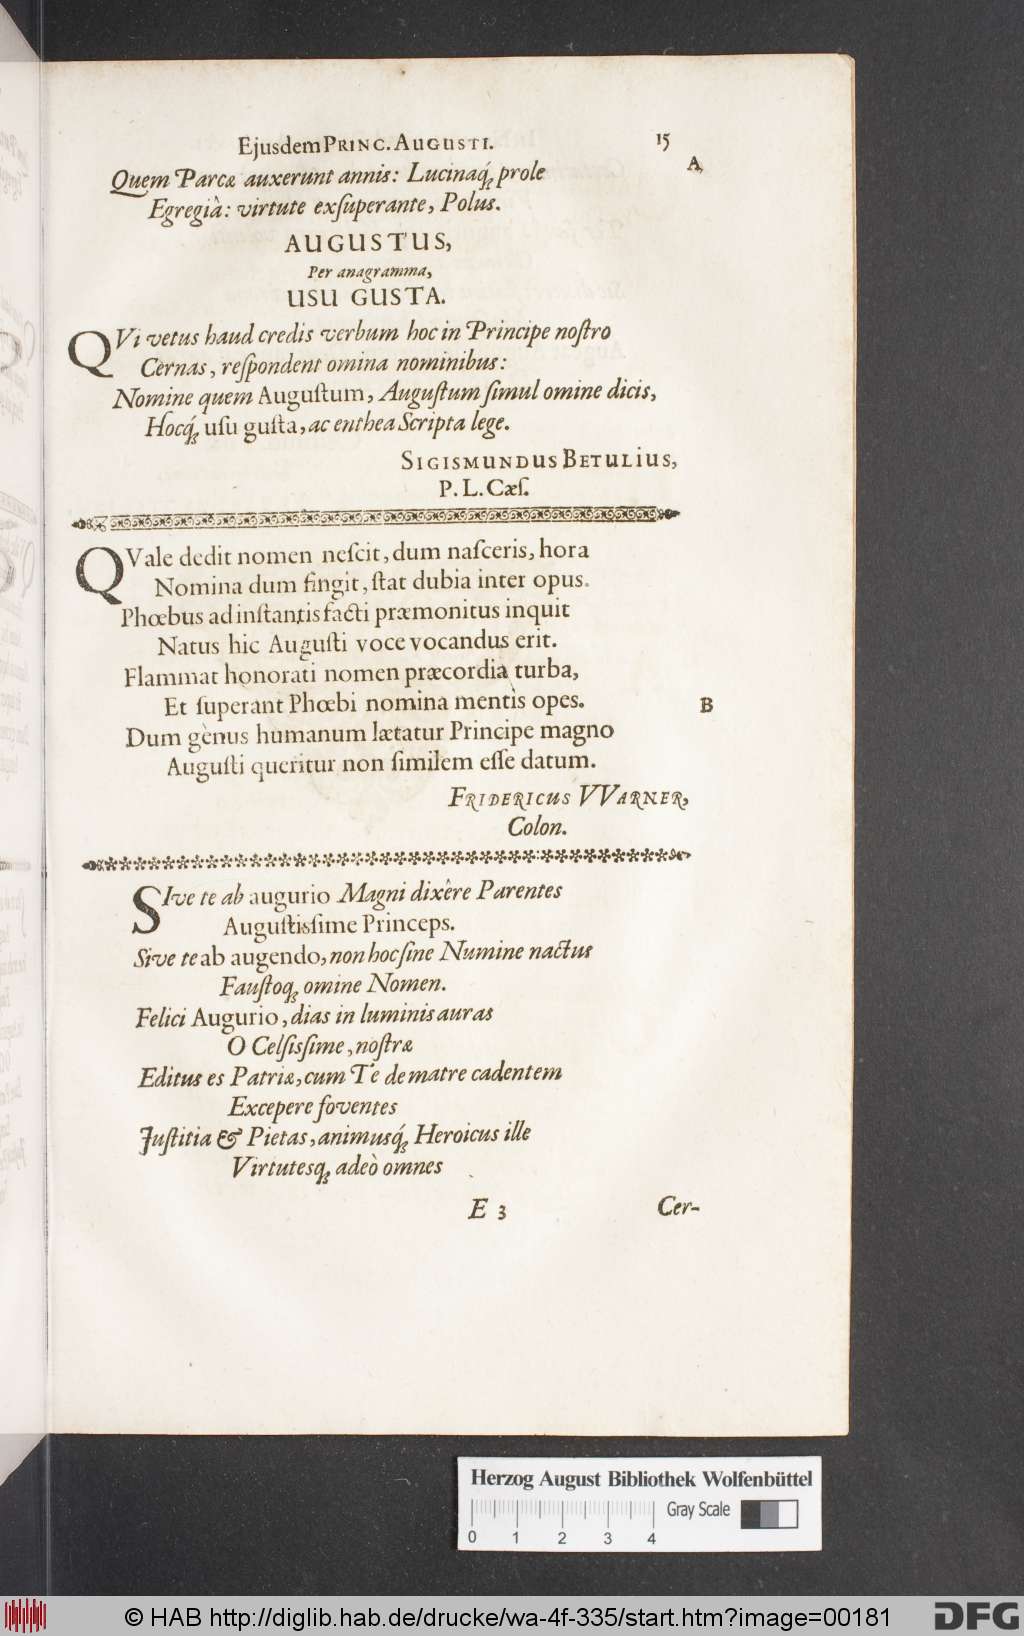 Ejusdem PRINC. AUGUSTI. 15
A
Quem Parcæ auxerunt annis: Lucinaq́; prole
Egregiâ: virtute exſuperante, Polus.
AUGUSTUS,
Per anagramma,
USU GUSTA.
QVi vetus haud credis verbum hoc in Principe noſtro
Cernas, reſpondent omina nominibus:
Nomine quem Auguſtum, Auguſtum ſimul omine dicis,
Hocq́; uſu guſta, ac enthea Scripta lege.
SIGISMUNDUS BETULIUS,
P. L. Cæſ.
QVale dedit nomen neſcit, dum naſceris, hora
Nomina dum fingit, ſtat dubia inter opus.
Phœbus ad inſtantis facti præmonitus inquit
Natus hic Auguſti voce vocandus erit.
Flammat honorati nomen præcordia turba,
Et ſuperant Phœbi nomina mentis opes.
B
Dum genus humanum lætatur Principe magno
Auguſti queritur non ſimilem eſſe datum.
FRIDERICUS VVARNER,
Colon.
SIve te ab augurio Magni dixêre Parentes
Auguſtisſime Princeps.
Sive te ab augendo, non hoc ſine Numine nactus
Fauſtoq; omine Nomen.
Felici Augurio, dias in luminis auras
O Celſisſime, noſtræ
Editus es Patriæ, cum Te de matre cadentem
Excepere foventes
Juſtitia & Pietas, animusq́; Heroicus ille
Virtutesq; adeò omnes
E 3 Cer-
Herzog August Bibliothek Wolfenbüttel
Gray Scale
0 1 2 3 4
© HAB http://diglib.hab.de/drucke/wa-4f-335/start.htm?image=00181
DFG